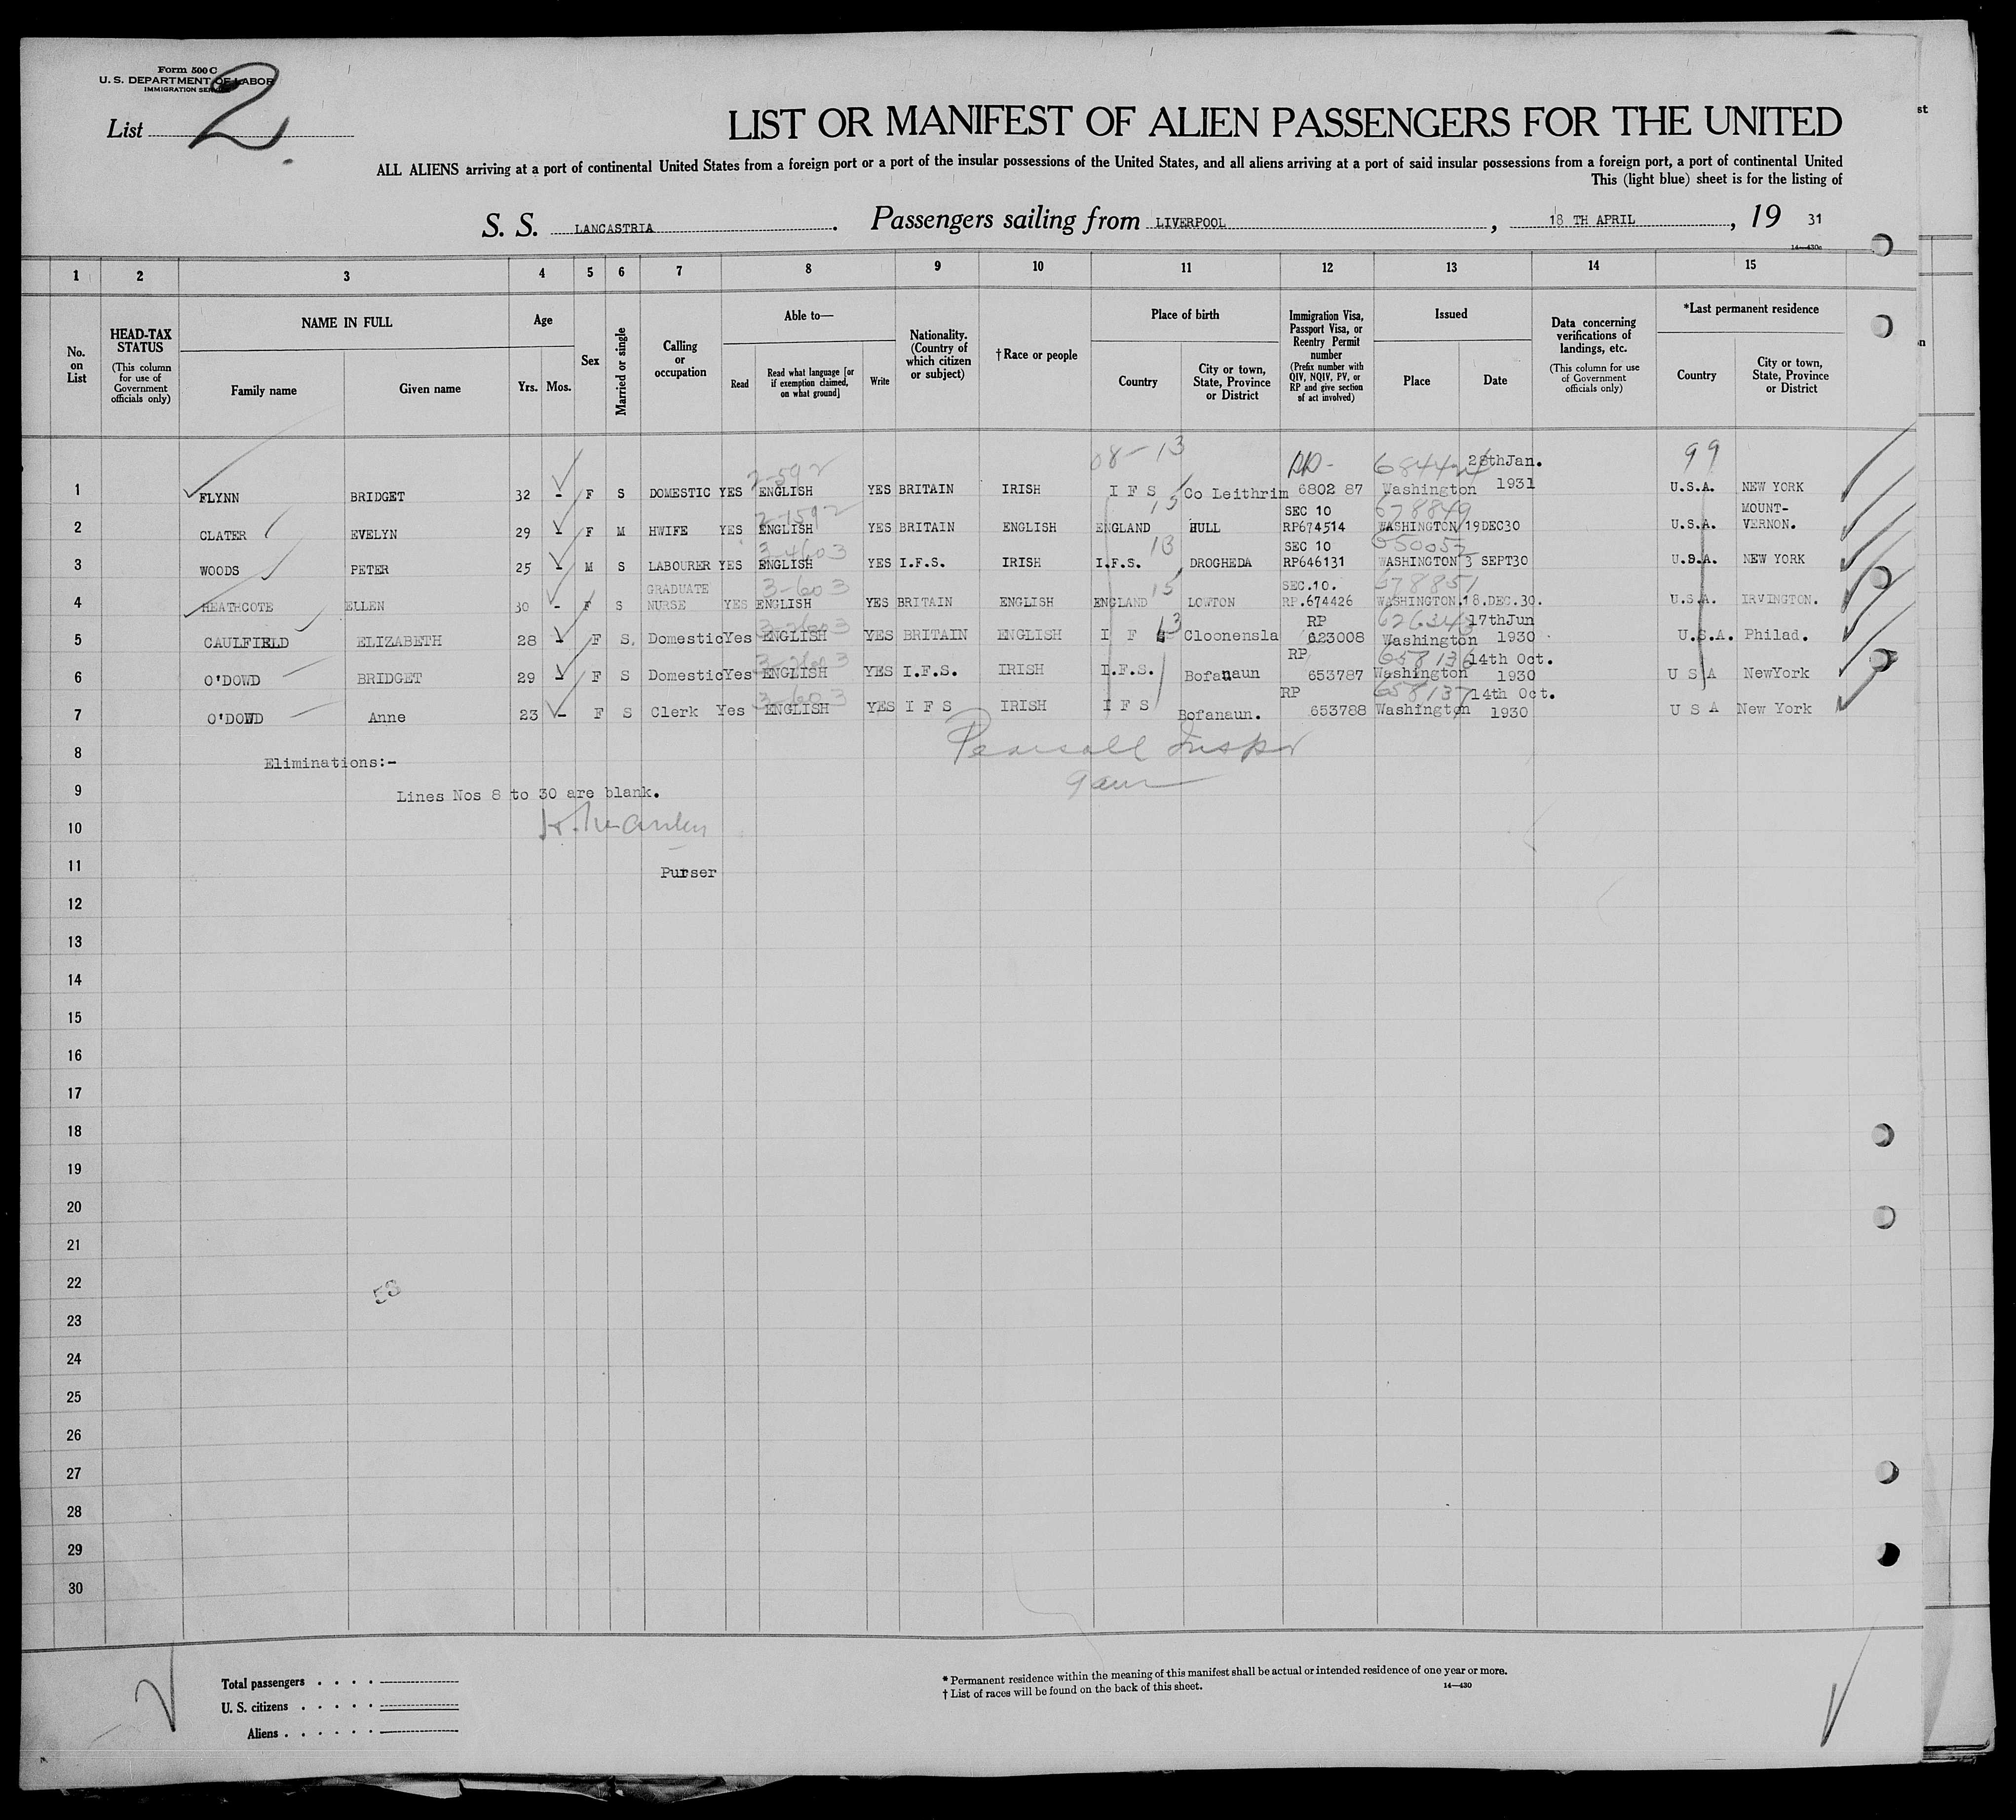 Form 500 C
U. S. DEPARTMENT OF LABOR
IMMIGRATION SERVICE
List 2.
LIST OR MANIFEST OF ALIEN PASSENGERS FOR THE UNITED
ALL ALIENS arriving at a port of continental United States from a foreign port or a port of the insular possessions of the United States, and all aliens arriving at a port of said insular possessions from a foreign port, a port of continental United
This (light blue) sheet is for the listing of
S. S. LANCASTRIA. Passengers sailing from LIVERPOOL, 18 TH APRIL, 19 31
14—430c
1 2 3 4 5 6 7 8 9 10 11 12 13 14 15
No. on List
HEAD-TAX STATUS
(This column for use of Government officials only)
NAME IN FULL
Family name
Given name
Age
Yrs. Mos.
Sex
Married or single
Calling or occupation
Able to—
Read
Read what language [or if exemption claimed, on what ground]
Write
Nationality. (Country of which citizen or subject)
† Race or people
Place of birth
Country
City or town, State, Province or District
Immigration Visa, Passport Visa, or Reentry Permit number
(Prefix number with QIV, NQIV, PV, or RP and give section of act involved)
Issued
Place
Date
Data concerning verifications of landings, etc.
(This column for use of Government officials only)
*Last permanent residence
Country
City or town, State, Province or District
08-13 99
2-592 RP- 684424 28thJan.
1 FLYNN BRIDGET 32 - F S DOMESTIC YES ENGLISH YES BRITAIN IRISH I F S Co Leithrim 6802 87 Washington 1931 U.S.A. NEW YORK
2-1592 15 SEC 10 678849 MOUNT-
2 CLATER EVELYN 29 - F M HWIFE YES ENGLISH YES BRITAIN ENGLISH ENGLAND HULL RP674514 WASHINGTON 19DEC30 U.S.A. VERNON.
3-4603 13 SEC 10 650052
3 WOODS PETER 25 - M S LABOURER YES ENGLISH YES I.F.S. IRISH I.F.S. DROGHEDA RP646131 WASHINGTON 3 SEPT30 U.S.A. NEW YORK
GRADUATE 3-603 15 SEC.10. 678851
4 HEATHCOTE ELLEN 30 - F S NURSE YES ENGLISH YES BRITAIN ENGLISH ENGLAND LOWTON RP.674426 WASHINGTON.18.DEC.30. U.S.A. IRVINGTON.
3-2603 13 RP 626343 17thJun
5 CAULFIELD ELIZABETH 28 - F S. Domestic Yes ENGLISH YES BRITAIN ENGLISH I F Cloonensla 623008 Washington 1930 U.S.A. Philad.
3-2603 RP 658136 14th Oct.
6 O'DOWD BRIDGET 29 - F S Domestic Yes ENGLISH YES I.F.S. IRISH I.F.S. Bofanaun 653787 Washington 1930 U S A NewYork
3-603 RP 658137 14th Oct.
7 O'DOWD Anne 23 - F S Clerk Yes ENGLISH YES I F S IRISH I F S Bofanaun. 653788 Washington 1930 U S A New York
Pearsall Inspr
8 Eliminations:-
9 Lines Nos 8 to 30 are blank.
10
11 Purser
12
13
14
15
16
17
18
19
20
21
22
53
23
24
25
26
27
28
29
30
Total passengers . . . .
U. S. citizens . . . . .
Aliens . . . . . .
* Permanent residence within the meaning of this manifest shall be actual or intended residence of one year or more.
† List of races will be found on the back of this sheet.
14—430